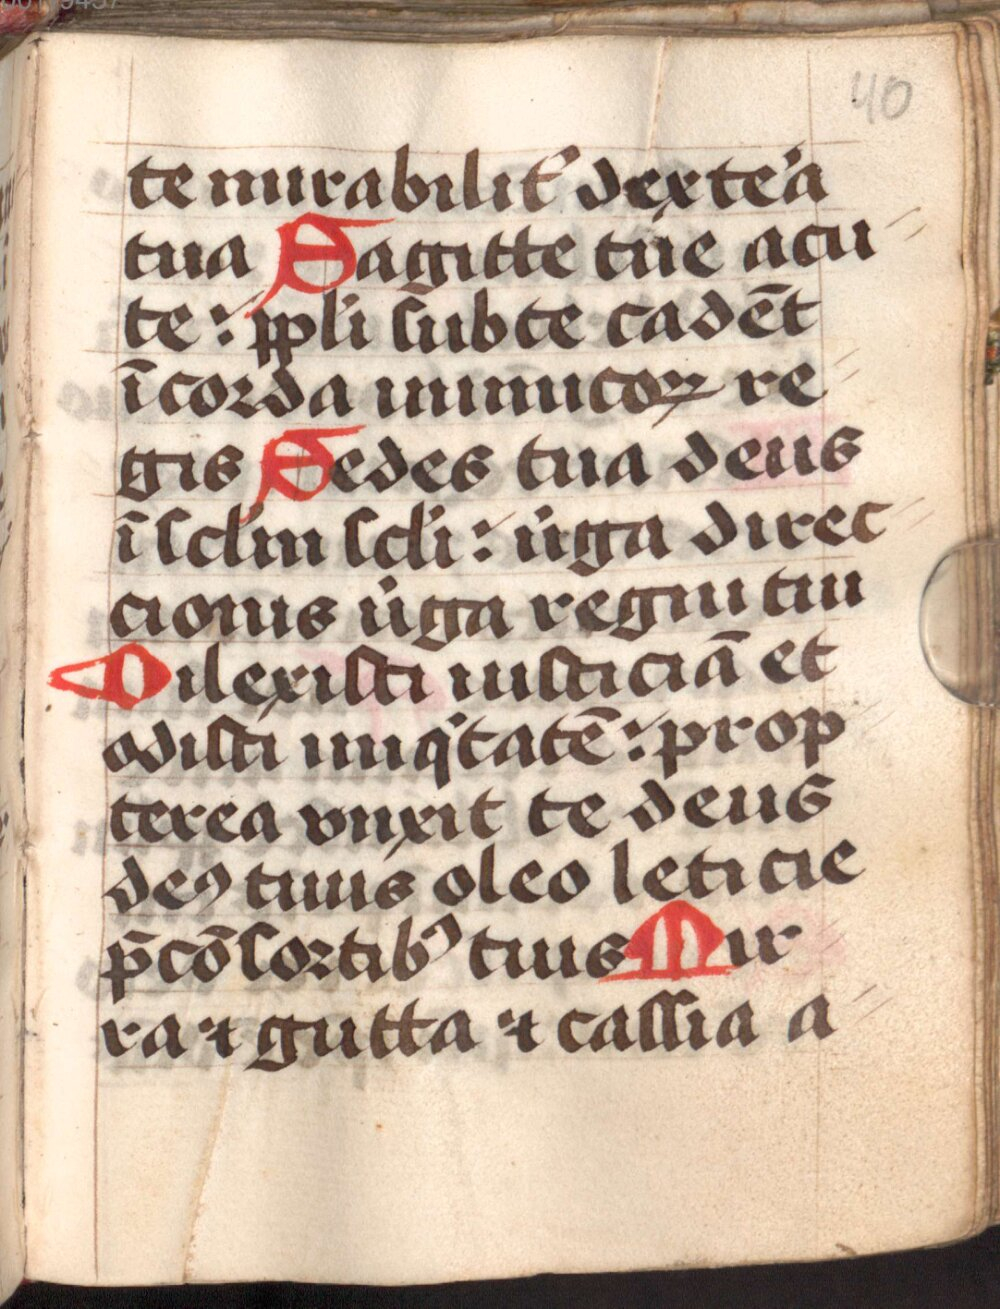 40
te mirabilit̉ dexte᷑a
tua Sagitte tue acu
te : ppl̉i sub te cadēt
ī corda inimicoꝝ re
gis Sedes tua deus
ī sclm̉ scl̉i : u̇ga direc
cionis u̇ga regni tui
Dilexisti iusticiā et
odisti iniqͥtatē : prop
terea vnxit te deus
deꝰ tuus oleo leticie
p̄ cōsortibꝰ tuis Mir
ra ⁊ gutta ⁊ cassia a